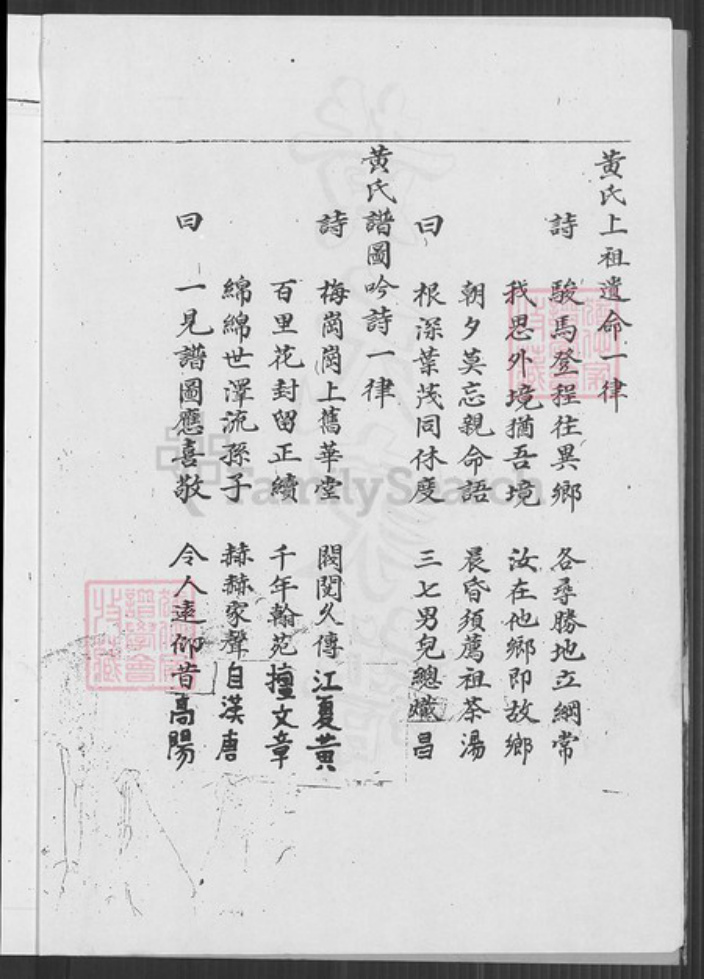 黃氏上祖遺命一律
詩 駿馬登程往異鄉 各尋勝地立綱常
我思外境猶吾境 汝在他鄉即故鄉
朝夕莫忘親命語 晨昏須薦祖茶湯
曰 根深葉茂同休度 三七男兒總熾昌
黃氏譜圖吟詩一律
詩 梅崗崗上舊華堂 閥閱久傳江夏黃
百里花封留正續 千年翰苑擅文章
綿綿世澤流孫子 赫赫家聲自漢唐
曰 一見譜圖應喜敬 令人遠仰昔高陽
FamilySearch